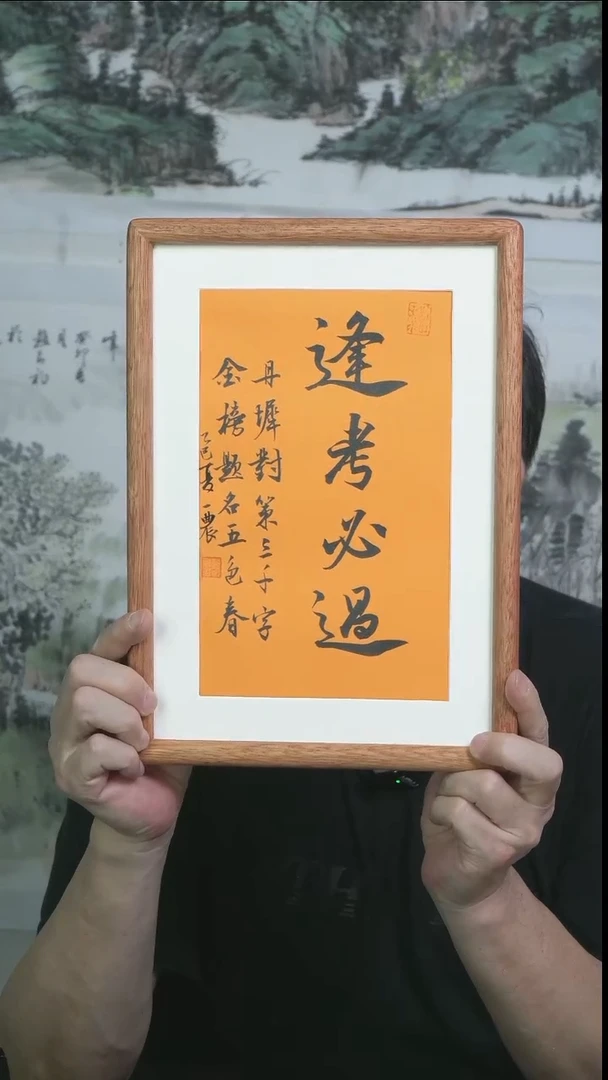 逢考必過
丹墀對策三千字
金榜題名五色春
乙巳夏一農